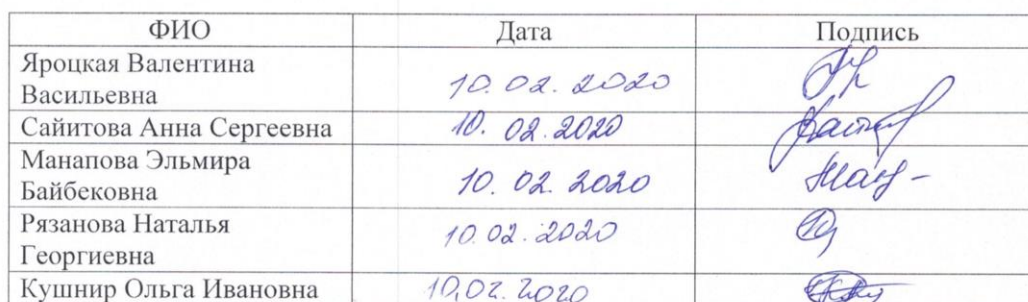 ФИО Дата Подпись
Яроцкая Валентина
Васильевна 10.02.2020
Сайитова Анна Сергеевна 10.02.2020
Манапова Эльмира
Байбековна 10.02.2020
Рязанова Наталья
Георгиевна 10.02.2020
Кушнир Ольга Ивановна 10,02.2020